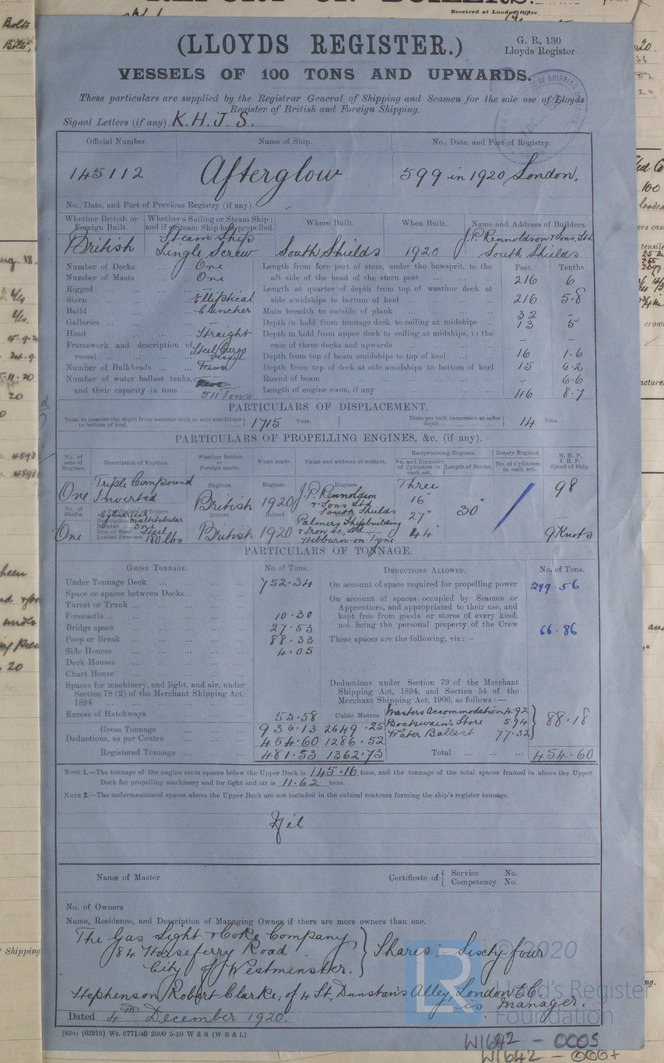 Received at London Office
(LLOYDS REGISTER.)
G. R. 130
Lloyds Register
VESSELS OF 100 TONS AND UPWARDS.
These particulars are supplied by the Registrar General of Shipping and Seamen for the sole use of Lloyds
Register of British and Foreign Shipping.
Signal Letters (if any) K.H.J.S.
Official Number. Name of Ship. No., Date, and Port of Registry.
145112 Afterglow 599 in 1920 London.
No., Date, and Port of Previous Registry (if any).
Whether British or Foreign Built. Whether a Sailing or Steam Ship; and if a Steam Ship how propelled. Where Built. When Built. Name and Address of Builders.
British Steam Ship Single Screw South Shields 1920 J.P. Rennoldson & Sons, Ltd South Shields
Number of Decks One Length from fore part of stem, under the bowsprit, to the Feet. Tenths
Number of Masts One aft side of the head of the stern post 216 6
Rigged Length at quarter of depth from top of weather deck at
Stern Elliptical side amidships to bottom of keel 216 5·8
Build Clencher Main breadth to outside of plank 32 -
Galleries Depth in hold from tonnage deck to ceiling at midships 13 5
Head Straight Depth in hold from upper deck to ceiling at midships, in the
Framework and description of vessel Steel Cargo vessel case of three decks and upwards - -
Depth from top of beam amidships to top of keel 16 1·6
Number of Bulkheads Four Depth from top of deck at side amidships to bottom of keel 15 6·2
Number of water ballast tanks, Round of beam - 6·6
and their capacity in tons Length of engine room, if any 46 8·7
PARTICULARS OF DISPLACEMENT.
Total to quarter the depth from weather deck at side amidships to bottom of keel 1715 Tons. Ditto per inch immersion at same depth 14 Tons.
PARTICULARS OF PROPELLING ENGINES, &c. (if any).
No. of sets of Engines. Description of Engines. Whether British or Foreign made. When made. Name and address of makers. Reciprocating Engines. Rotary Engines. N.H.P. I.H.P. Speed of Ship.
No. and Diameter of Cylinders in each set. Length of Stroke. No. of Cylinders in each set.
One Triple Compound Inverted Engines. British Engines. 1920 Engines. J.P. Rennoldson & Sons Ltd South Shields Three 16" 27" 44" 30" 98
No. of Shafts. One Cylindrical multitubular One Steel 180 lbs Boilers British Boilers 1920 Boilers Palmers Shipbuilding & Iron Co., Ltd. Hebburn-on-Tyne 9 Knots
PARTICULARS OF TONNAGE.
GROSS TONNAGE. No. of Tons. DEDUCTIONS ALLOWED. No. of Tons.
Under Tonnage Deck 752·34 On account of space required for propelling power 299·56
Space or spaces between Decks On account of spaces occupied by Seamen or
Turret or Trunk Apprentices, and appropriated to their use, and
Forecastle 10·30 kept free from goods or stores of every kind,
Bridge space 27·53 not being the personal property of the Crew 66·86
Poop or Break 88·33 These spaces are the following, viz:—
Side Houses 4·05
Deck Houses
Chart House
Spaces for machinery, and light, and air, under Deductions under Section 79 of the Merchant
Section 78 (2) of the Merchant Shipping Act, Shipping Act, 1894, and Section 54 of the
1894 Merchant Shipping Act, 1906, as follows:—
Excess of Hatchways 53·58 Cubic Metres Masters Accommodation 4·92
Gross Tonnage 936·13 2649·25 Boatswain's Store 5·94 88·18
Deductions, as per Contra 454·60 1286·52 Water Ballast 77·32
Registered Tonnage 481·53 1362·73 Total 454·60
NOTE 1.—The tonnage of the engine room spaces below the Upper Deck is 145·16 tons, and the tonnage of the total spaces framed in above the Upper
Deck for propelling machinery and for light and air is 11·62 tons.
NOTE 2.—The undermentioned spaces above the Upper Deck are not included in the cubical contents forming the ship's register tonnage.
Nil
Name of Master Certificate of { Service No. Competency No.
No. of Owners
Name, Residence, and Description of Managing Owner if there are more owners than one.
The Gas Light & Coke Company
84 Horseferry Road } Shares Sixty four
City of Westminster.
Stephenson Robert Clarke, of 4 St. Dunstan's Alley London E.C.
is manager.
Dated 4th December 1920.
(83a) (62915) Wt. 6771/40 2000 5-20 W & S (W B L)
© 2020
LR Lloyd's Register
Foundation
W1642 - 0005
W1642 - 0004